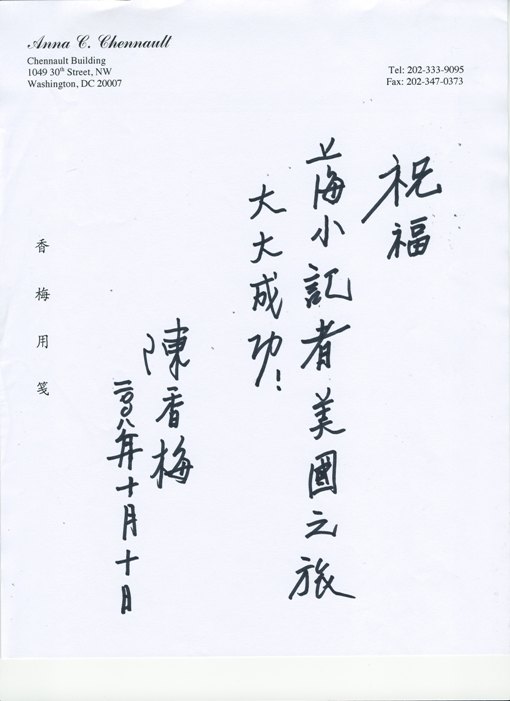 Anna C. Chennault
Chennault Building
1049 30th Street, NW
Washington, DC 20007
Tel: 202-333-9095
Fax: 202-347-0373
祝福
上海小記者美國之旅
大大成功!
陳香梅
二〇〇八年十月十日
香梅用箋